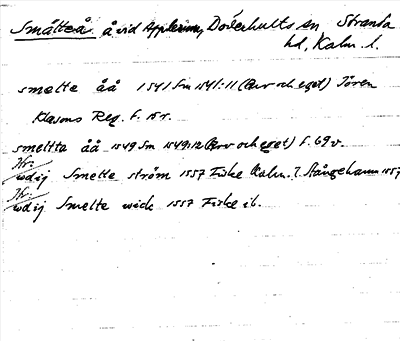 Småltteå å vid Applerum, Döderhults sn Stranda
hd, Kalm. l.
smelte åå 1541 Sm 1541:11 (Arv och eget) Jören
Klasons Reg. f. 15 r.
smeltta åå 1549 Sm 1549:12 (Arv och eget) f. 69 v.
Hr:
widij Smelte ström 1557 Fiske Kalm. l. Stångehamn 1557
Hr:
widij Smelte wiick 1557 Fiske ib.